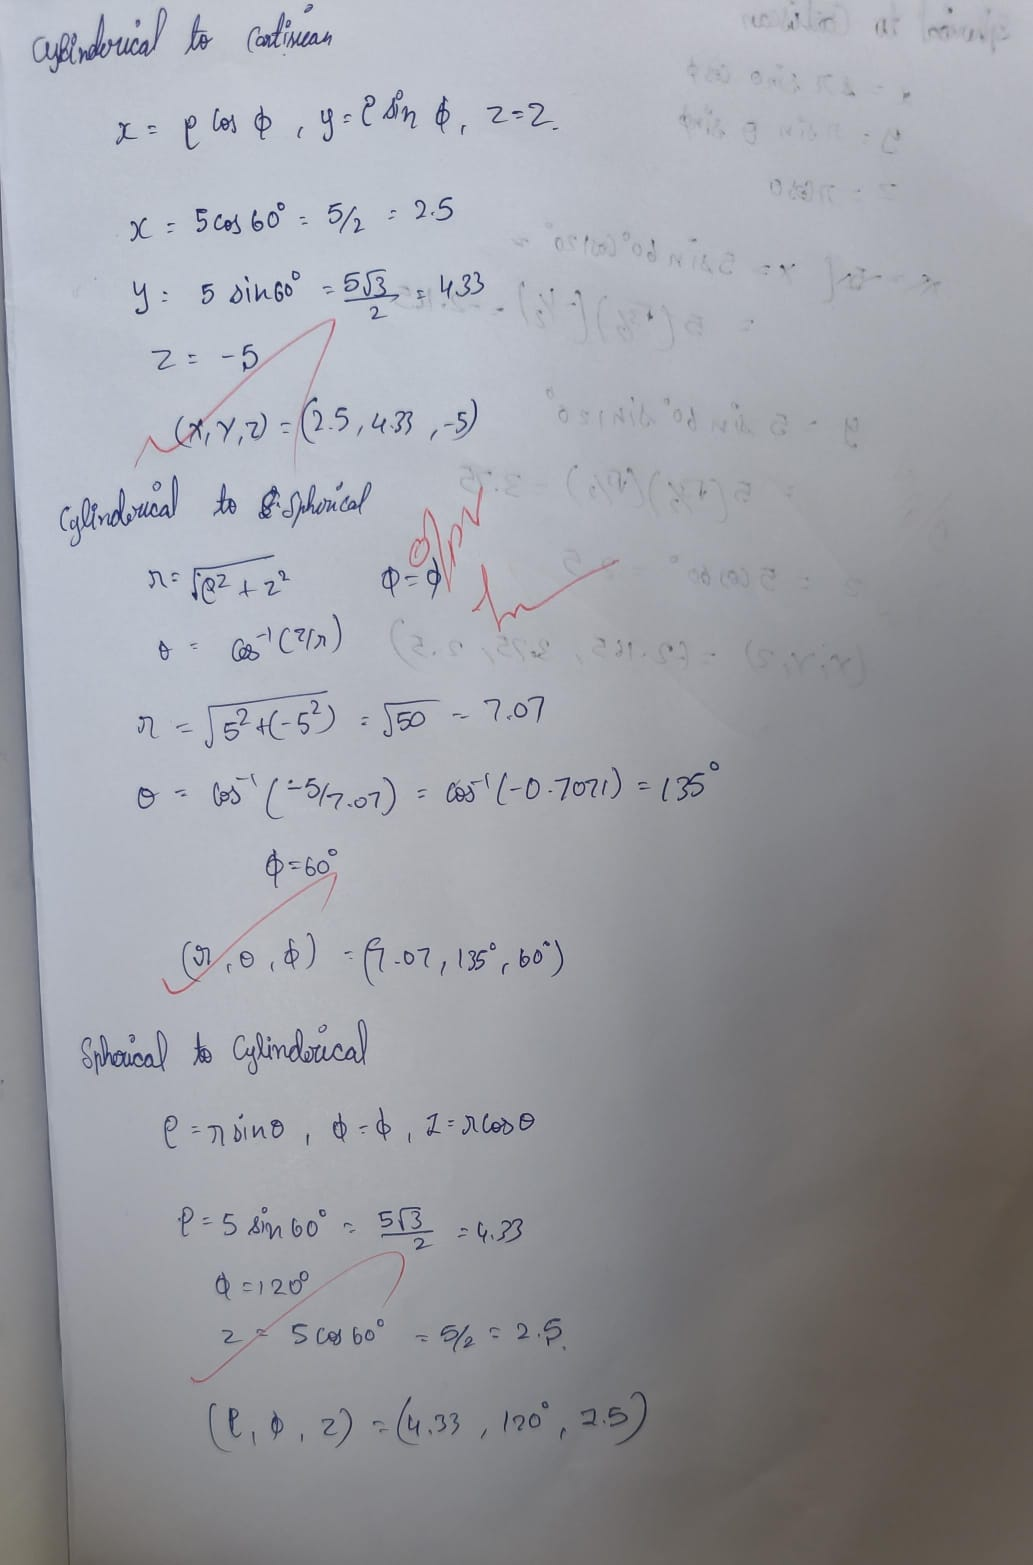 Cylinderical to Cartisiean
x = ρ cos ϕ , y = ρ sin ϕ, z=z.
x = 5 cos 60° = 5/2 = 2.5
y = 5 sin 60° = 5√3/2 = 4.33
z = -5
(x, y, z) = (2.5, 4.33, -5)
Cylinderical to Spherical
r = √ρ² + z² ϕ = ϕ
θ = cos⁻¹ (z/r)
r = √5² + (-5²) = √50 = 7.07
θ = cos⁻¹ (-5/7.07) = cos⁻¹ (-0.7071) = 135°
ϕ = 60°
(r, θ, ϕ) = (7.07, 135°, 60°)
Spherical to Cylinderical
ρ = r sin θ , ϕ = ϕ , z = r cos θ
ρ = 5 sin 60° = 5√3/2 = 4.33
ϕ = 120°
z = 5 cos 60° = 5/2 = 2.5.
(ρ, ϕ, z) = (4.33, 120°, 2.5)